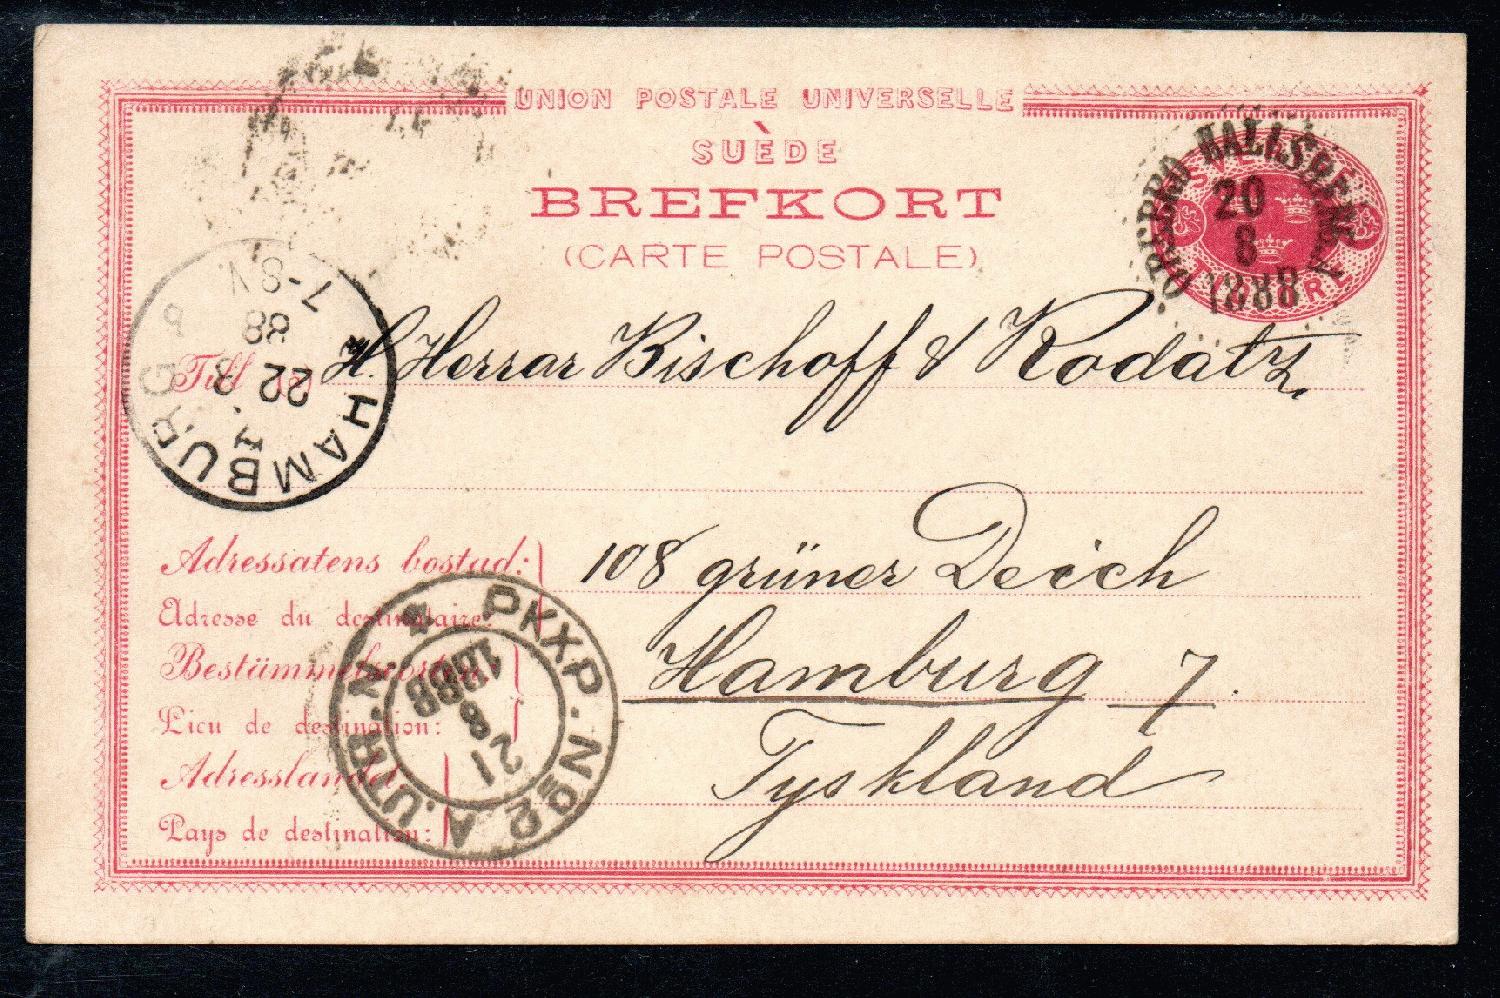 UNION POSTALE UNIVERSELLE
SUÈDE
BREFKORT
(CARTE POSTALE)
ÖREBRO HALLSBERG
20
8
1888
Till
H. Herrar Bischoff & Rodatz,
HAMBURG
22 8
88
7-8 N.
Adressatens bostad:
108 grüner Deich
Adresse du destinataire:
Bestämmelseorten:
Hamburg 7.
Lieu de destination:
Tyskland
Adresslandet:
Pays de destination:
PKXP. No 2 A. UTR. N
21
8
1888